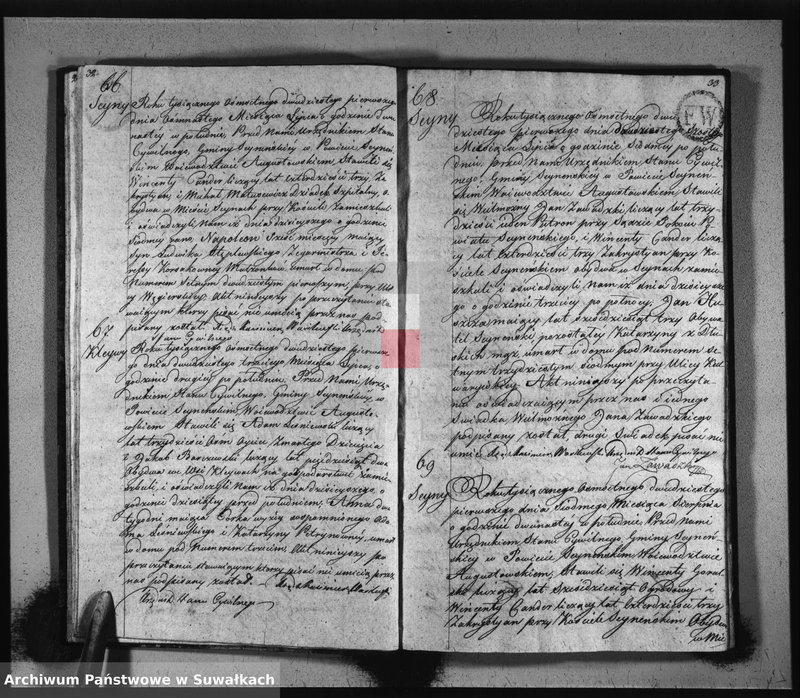 32.
66
Seyny Roku tysiącznego osmsetnego dwudziestego pierwszego
dnia Miesiąca Lipca o godzinie dwu-
nastey w południe, Przed Nami Urzędnikiem Stanu
Cywilnego, Gminy Seynenskiey w Powiecie Seyneń-
skim Woiewodztwie Augustowskiem, Stawili się
Wincenty Cander liczący lat Czterdzieści trzy, Za-
krystyan i Michał Matusewicz Dziadek Szpitalny, o-
bydwa w Mieście Seynach przy Kościele zamieszkali
i oświadczyli Nam iż dnia dzisieyszego o godzinie
siodmey rano, Napoleon sześć miesięcy maiący
Syn Ludwika Zegarmistrza i Te-
resy Małżonków, umarł w domu pod
Numerem setnym dwudziestym pierwszym, przy Uli-
cy Węgierskiey. Akt ninieyszy po przeczytaniu sta-
waiącym ktorzy pisać nie umieią przez nas pod-
pisany został. X. Kazimierz Urzędnik
Stanu Cywilnego
67
Kleywy Roku tysiącznego osmsetnego dwudziestego pierwsze-
go dnia dwudziestego trzeciego Miesiąca Lipca, o
godzinie drugiey po południu. Przed Nami Urzę-
dnikiem Stanu Cywilnego, Gminy Seynenskiey, w
Powiecie Seynenskim Woiewodztwie Augusto-
wskiem Stawili się Adam Lesniewski liczący
lat trzydzieści osm Oyciec zmarłego Dziecięcia
i Jakub Barszewski liczący lat pięćdziesiąt dwa
Obydwa we Wsi Kleywach na gospodarstwie zamie-
szkali, i oświadczyli Nam iż dnia dzisieyszego, o
godzinie dziesiątey przed południem, Anna dwa
tygodni maiąca Corka wyżey wspomnionego Ada-
ma Lesniewskiego i Katarzyny umarła
w domu pod Numerem trzecim. Akt ninieyszy po
przeczytaniu stawaiącym ktorzy pisać nie umieią przez
nas podpisany został. X. Kazimierz
Urzęd. Stanu Cywilnego
33
68
Seyny Roku tysiącznego osmsetnego dwu-
dziestego pierwszego dnia dwudziestego
Miesiąca Lipca o godzinie siodmey po połu-
dniu, przed Nami Urzędnikiem Stanu Cywil-
nego, Gminy Seynenskiey w Powiecie Seynen-
skim, Woiewodztwie Augustowskiem Stawili
się Wielmożny Jan Zawadzki liczący lat trzy-
dzieści ieden Patron przy Sądzie Pokoiu Po-
wiatu Seynenskiego i Wincenty Cander liczą-
cy lat Czterdzieści trzy Zakrystyan przy Ko-
ściele Seyneńskim obydwa w Seynach zamie-
szkali i oświadczyli nam iż dnia dzisieysze-
go o godzinie trzeciey po północy, Jan
maiący lat sześćdziesiąt trzy Obywa-
tel Seynenski, pozostały Katarzyny z
mąż, umarł w domu pod Numerem se-
tnym trzydziestym siodmym przy Ulicy
Akt ninieyszy po przeczyta-
niu oświadczaiącym przez nas i iednego
Świadka Wielmożnego Jana Zawadzkiego
podpisany został, drugi Świadek pisać nie
umie. X. Kazimierz Urzędnik Stanu Cywilnego
Jan Zawadzki
69
Seyny Roku tysiącznego osmsetnego dwudziestego
pierwszego dnia siodmego Miesiąca Sierpnia
o godzinie dwunastey w południe Przed Nami
Urzędnikiem Stanu Cywilnego, Gminy Seynen-
skiey w Powiecie Seynenskim Woiewodztwie
Augustowskiem, Stawili się Wincenty
liczący lat sześćdziesiąt Ogrodowy i
Wincenty Cander liczący lat Czterdzieści trzy
Zakrystyan przy Kościele Seynenskim Obydwa
w Mie-
FW
Archiwum Państwowe w Suwałkach